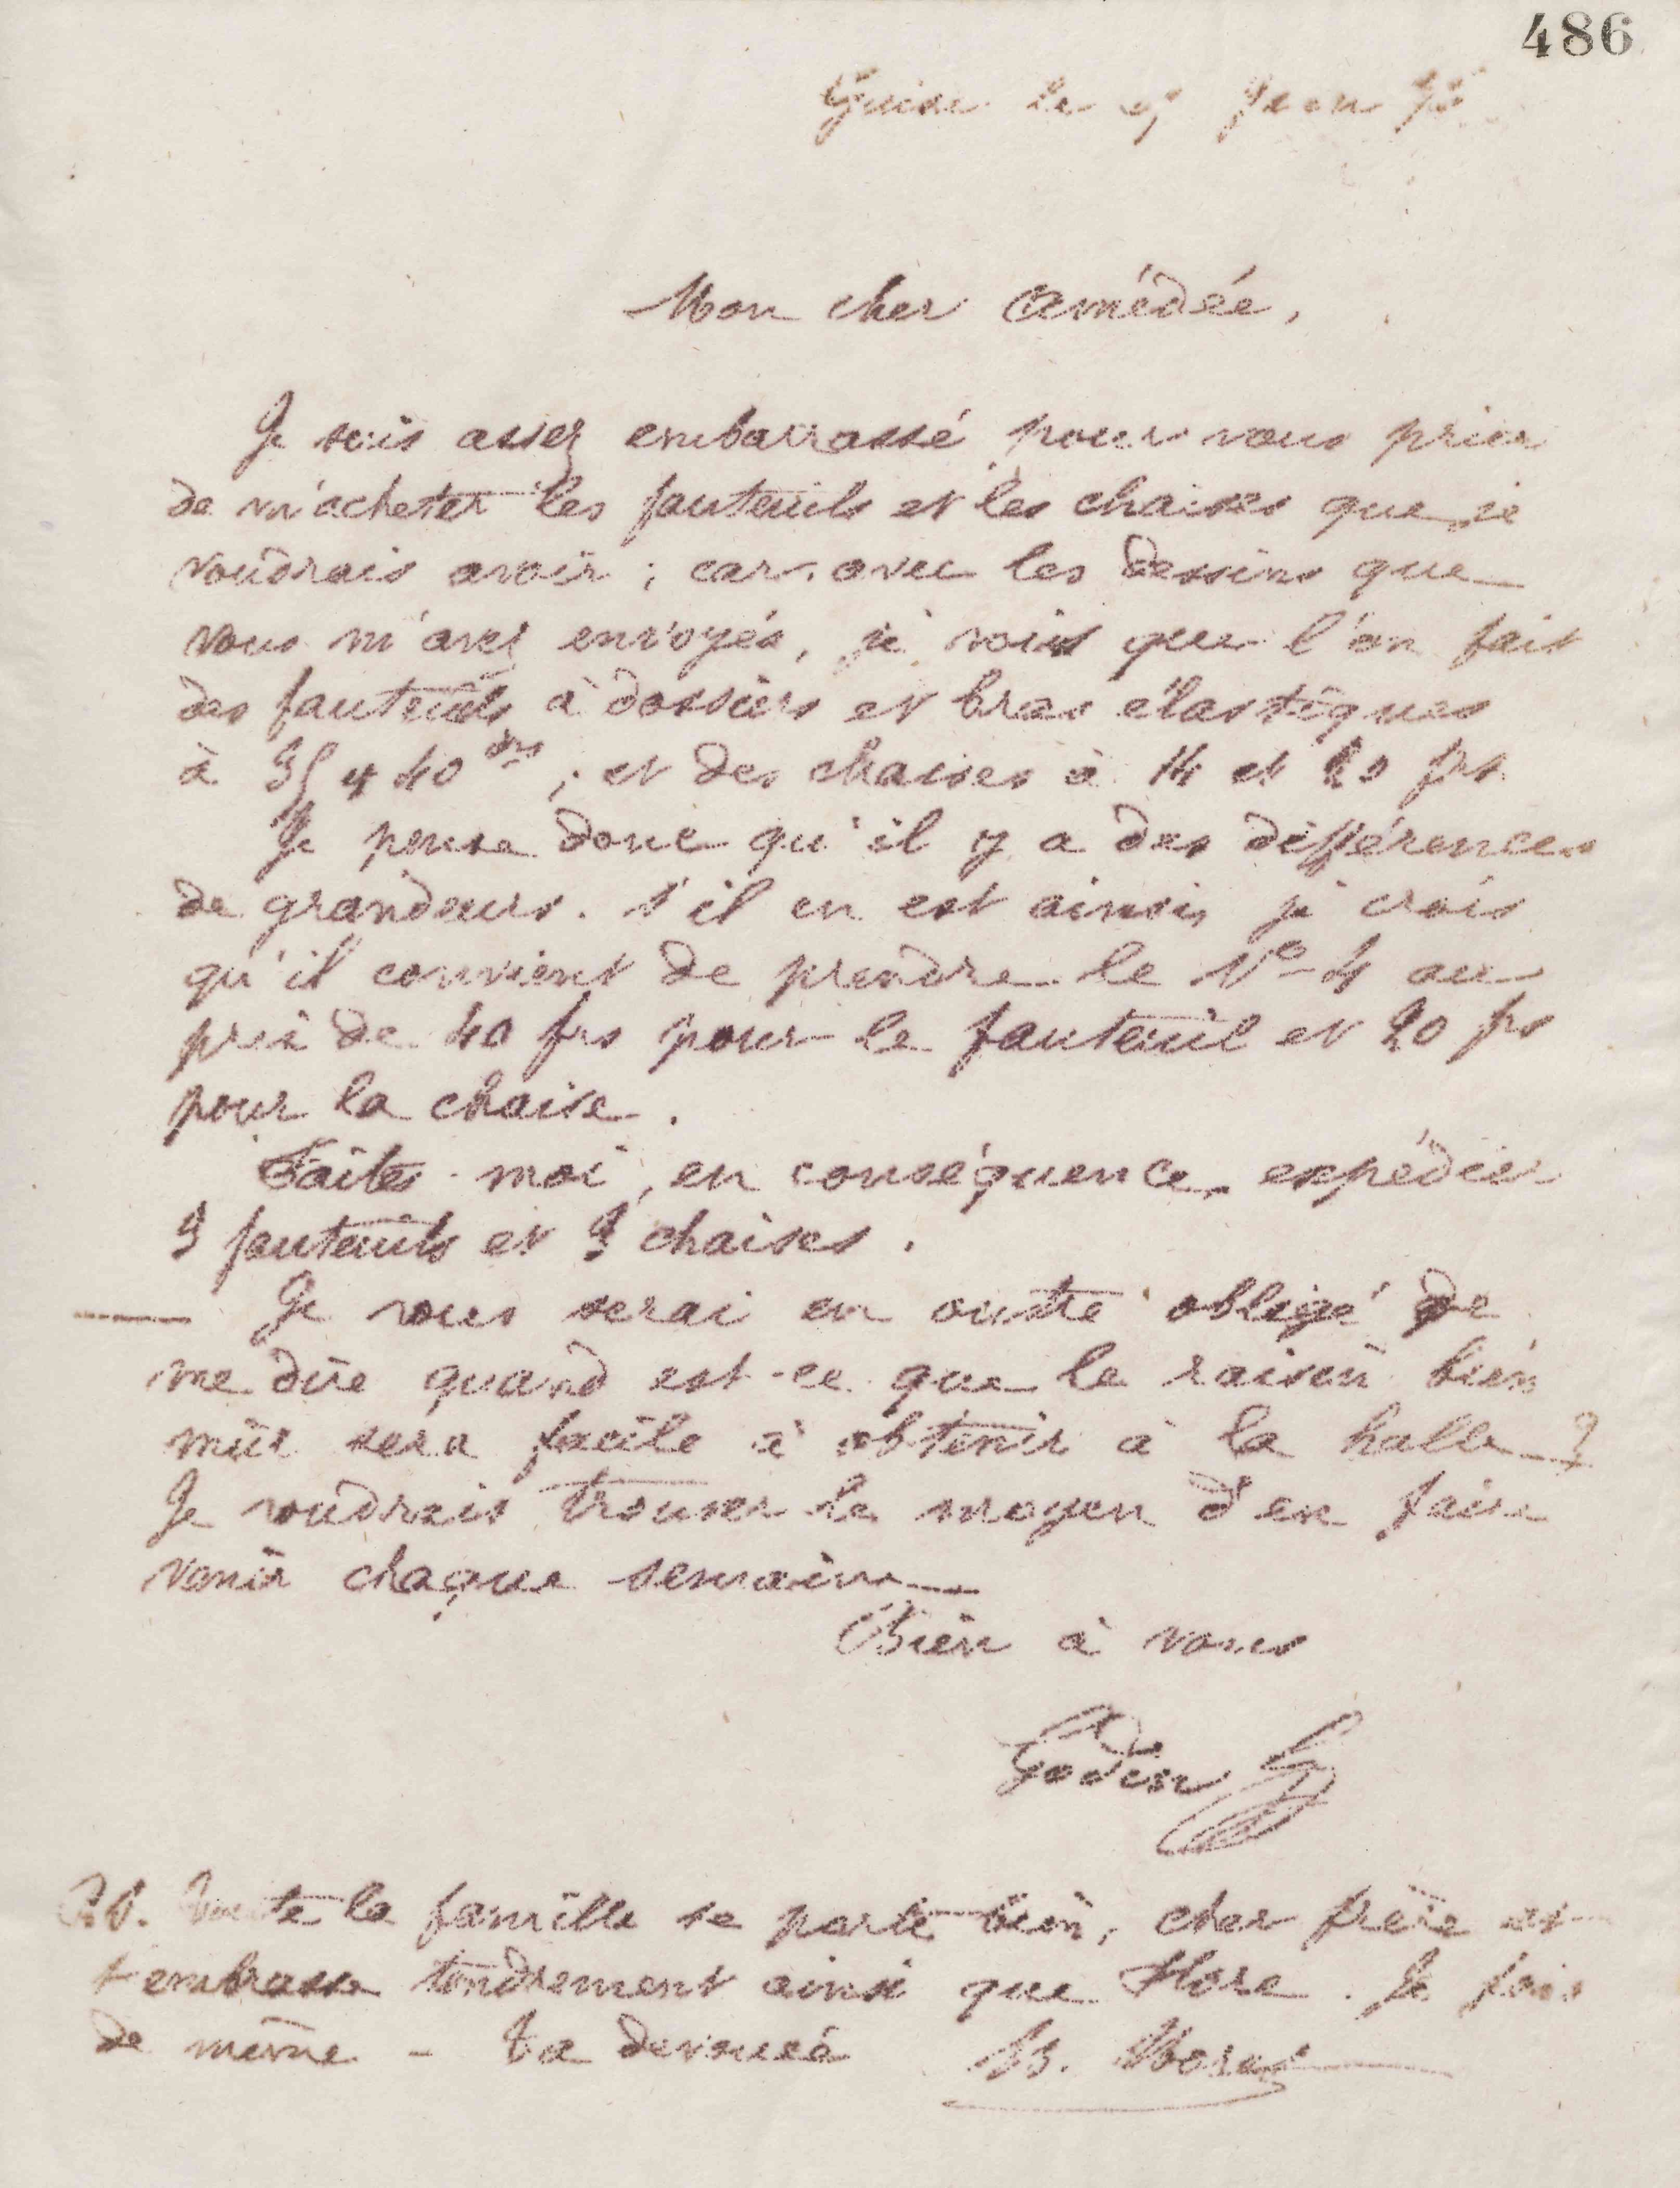 486
Guise le
Mon cher Amédée,
Je suis assez embarrassé pour vous prier
de m'acheter les fauteuils et les chaises que je
voudrais avoir ; car, avec les dessins que
vous m'avez envoyés, je vois que l'on fait
des fauteuils à dossiers et bras élastiques
à 35 et 40 frs ; et des chaises à 14 et 20 frs.
Je pense donc qu'il y a des différences
de grandeurs. s'il en est ainsi, je crois
qu'il convient de prendre le No 4 au
prix de 40 frs pour le fauteuil et 20 frs
pour la chaise.
Faites-moi, en conséquence, expédier
fauteuils et chaises.
Je vous serai en outre obligé de
me dire quand est-ce que le raisin bien
mûr sera facile à obtenir à la halle ?
Je voudrais trouver le moyen d'en faire
venir chaque semaine
Bien à vous
Godin
P.S. Toute la famille se porte bien, cher frère et
t'embrasse tendrement ainsi que Flore. Je fais
de même - Ta dévouée M. Moret